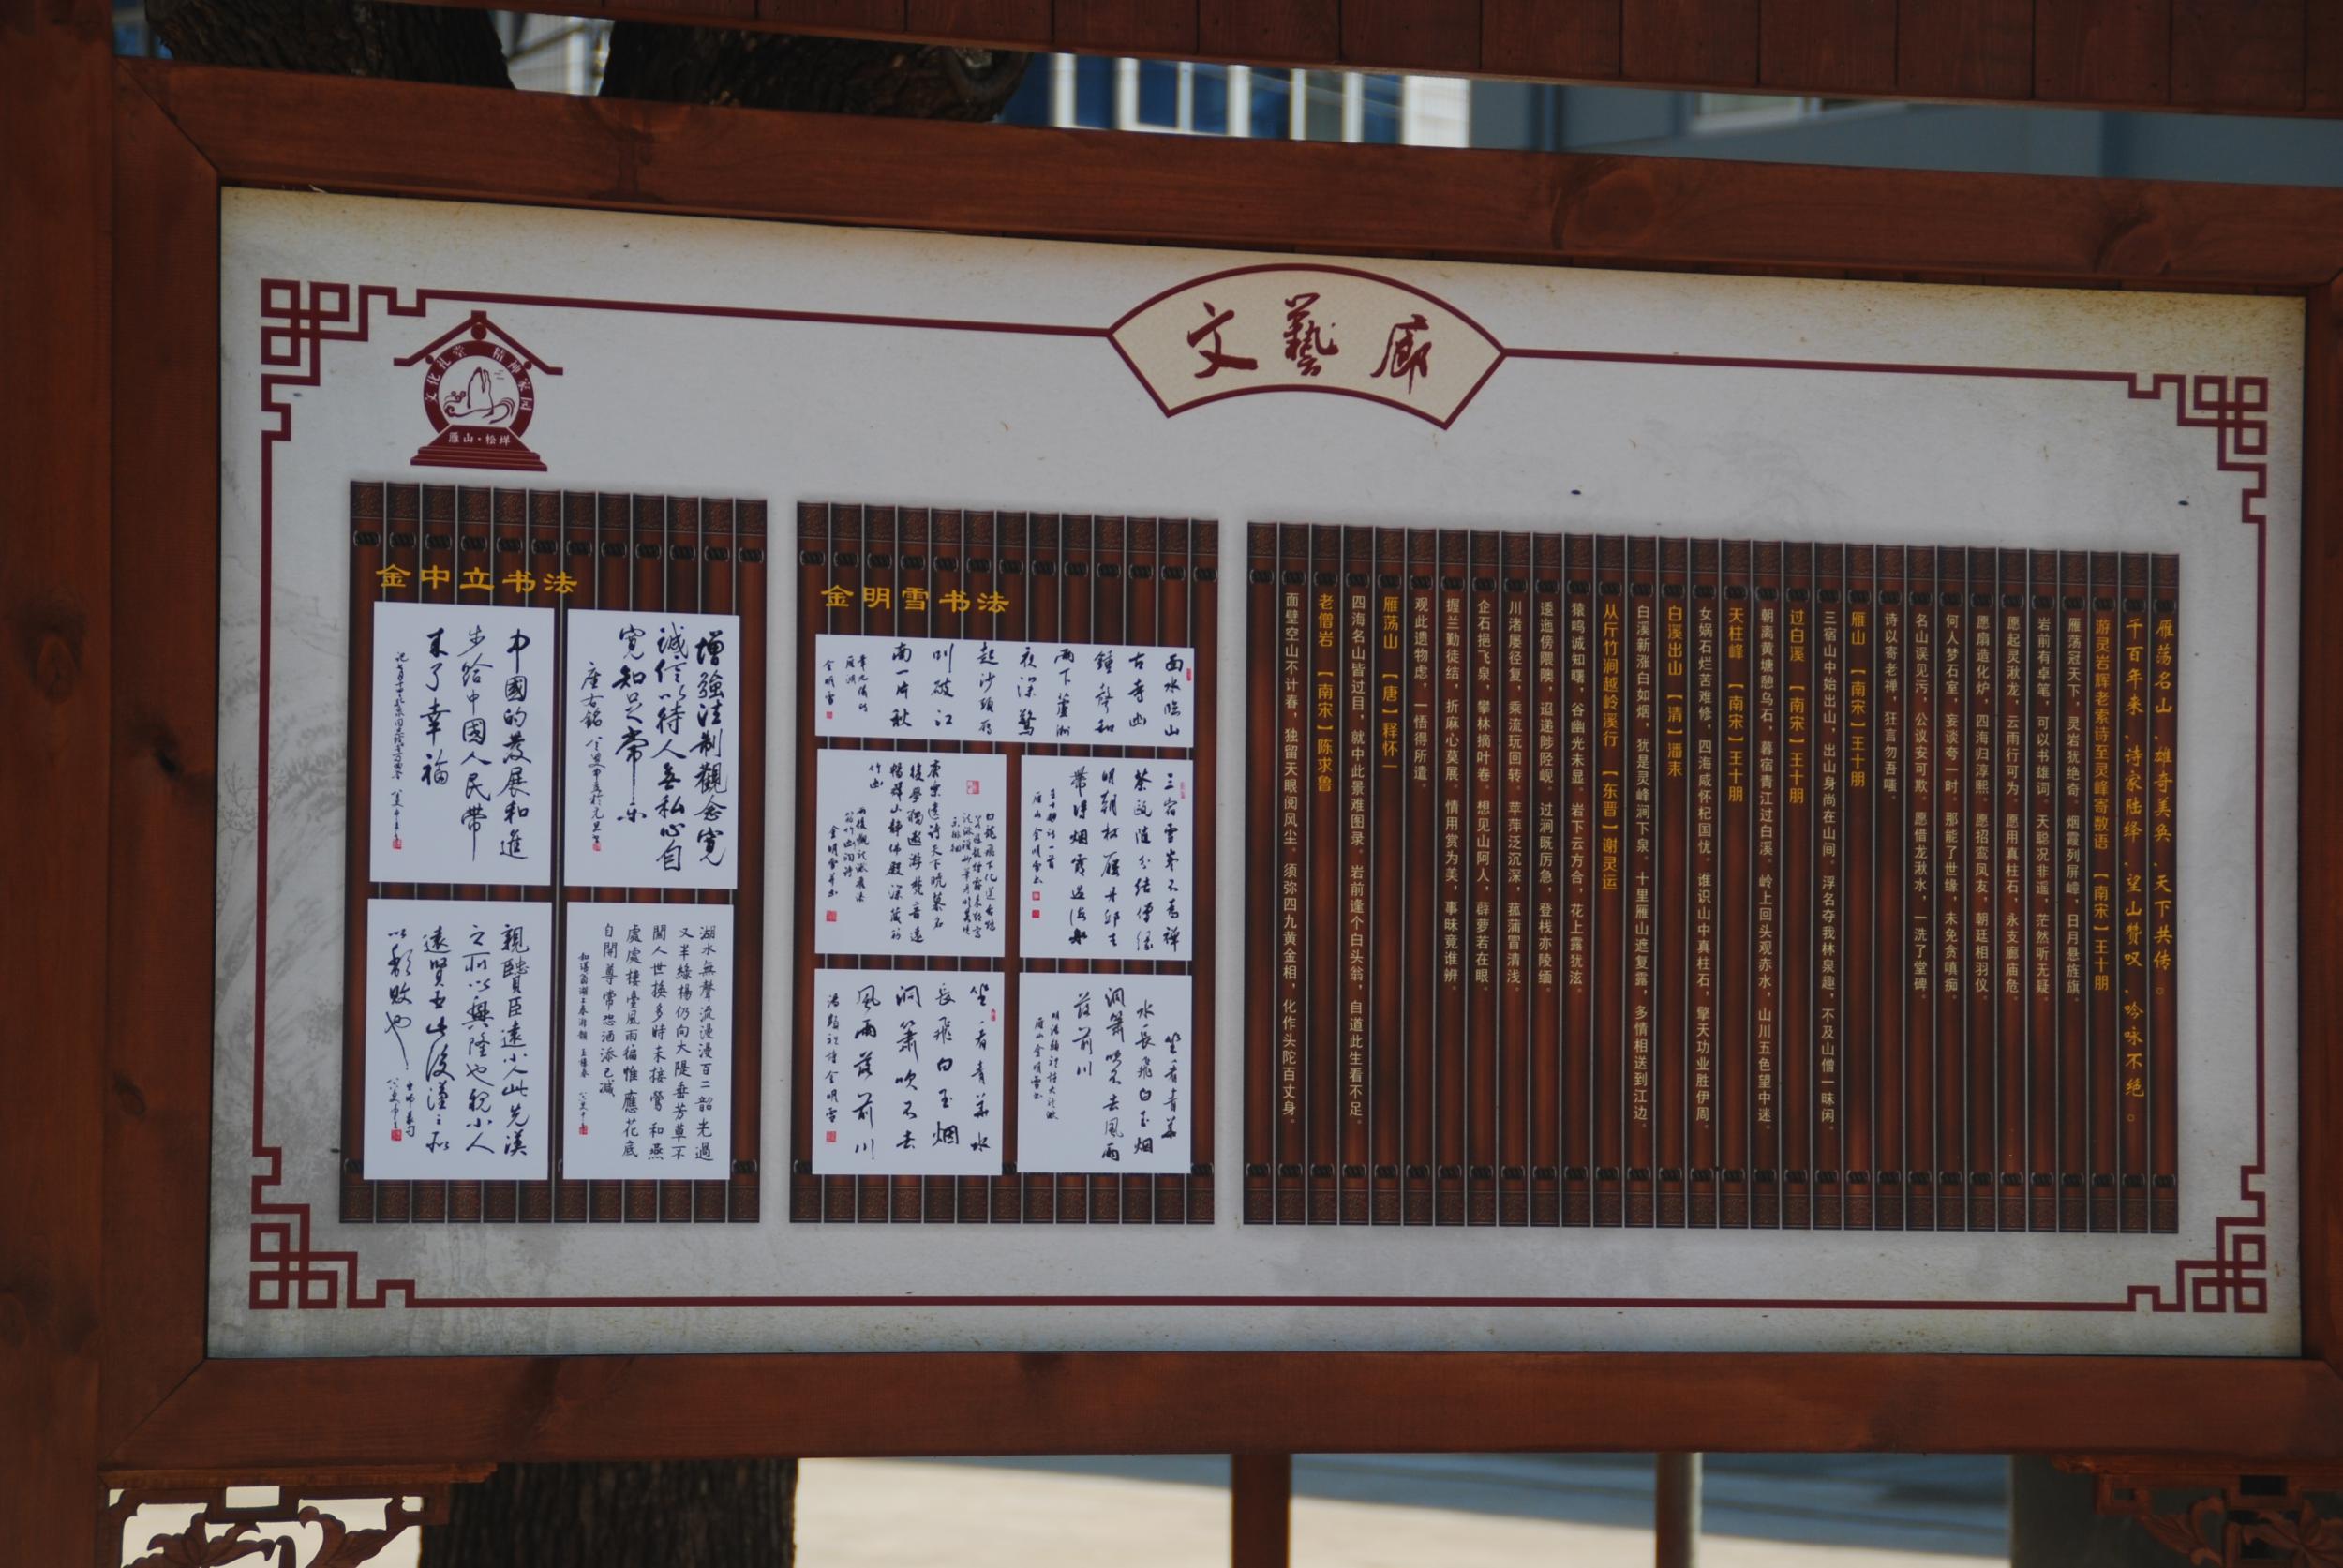 文藝廊
文化礼堂 精神家园
雁山·松垟
金中立书法
增強法制觀念寬
誠信以待人無私心自
寬知足常樂
座右銘
中國的發展和進
步給中國人民帶
來了幸福
湖水無聲流漫漫百二韶光過
又半綠楊仍向大隄垂芳草不
關人世換多時未接鶯和燕
處處樓臺風雨徧惟應花底
自開尊常恐酒添已減
親賢臣遠小人此先漢
之所以興隆也親小人
遠賢臣此後漢之所
以傾敗也
金明雪书法
面水臨山
古寺幽
鍾聲和
雨下蘆洲
夜深驚
起沙頭雁
叫破江
南一片秋
金明雪
坐看青華
水長飛白玉烟
洞簫吹不去風雨
落前川
坐看青華水
長飛白玉烟
洞簫吹不去
風雨落前川
雁荡名山、雄奇美奂、天下共传。
千百年来、诗家陆绎、望山赞叹、吟咏不绝。
游灵岩辉老索诗至灵峰寄数语 【南宋】王十朋
雁荡冠天下，灵岩犹绝奇。烟霞列屏嶂，日月悬旌旗。
岩前有卓笔，可以书雄词。天聪况非遥，茫然听无疑。
愿起灵湫龙，云雨行可为。愿用真柱石，永支廊庙危。
愿扇造化炉，四海归淳熙。愿招鸾凤友，朝廷相羽仪。
何人梦石室，妄谈夸一时。那能了世缘，未免贪嗔痴。
名山误见污，公议安可欺。愿借龙湫水，一洗了堂碑。
诗以寄老禅，狂言勿吾嗤。
雁山 【南宋】王十朋
三宿山中始出山，出山身尚在山间。浮名夺我林泉趣，不及山僧一味闲。
过白溪 【南宋】王十朋
朝离黄塘憩乌石，暮宿青江过白溪。岭上回头观赤水，山川五色望中迷。
天柱峰 【南宋】王十朋
女娲石烂苦难修，四海咸怀杞国忧。谁识山中真柱石，擎天功业胜伊周。
白溪出山 【清】潘耒
白溪新涨白如烟，犹是灵峰涧下泉。十里雁山遮复露，多情相送到江边。
从斤竹涧越岭溪行 【东晋】谢灵运
猿鸣诚知曙，谷幽光未显。岩下云方合，花上露犹泫。
逶迤傍隈隩，迢递陟陉岘。过涧既厉急，登栈亦陵缅。
川渚屡径复，乘流玩回转。苹萍泛沉深，菰蒲冒清浅。
企石挹飞泉，攀林摘叶卷。想见山阿人，薜萝若在眼。
握兰勤徒结，折麻心莫展。情用赏为美，事昧竟谁辨。
观此遗物虑，一悟得所遣。
雁荡山 【唐】释怀一
四海名山皆过目，就中此景难图录。岩前逢个白头翁，自道此生看不足。
老僧岩 【南宋】陈求鲁
面壁空山不计春，独留天眼阅风尘。须弥四九黄金相，化作头陀百丈身。